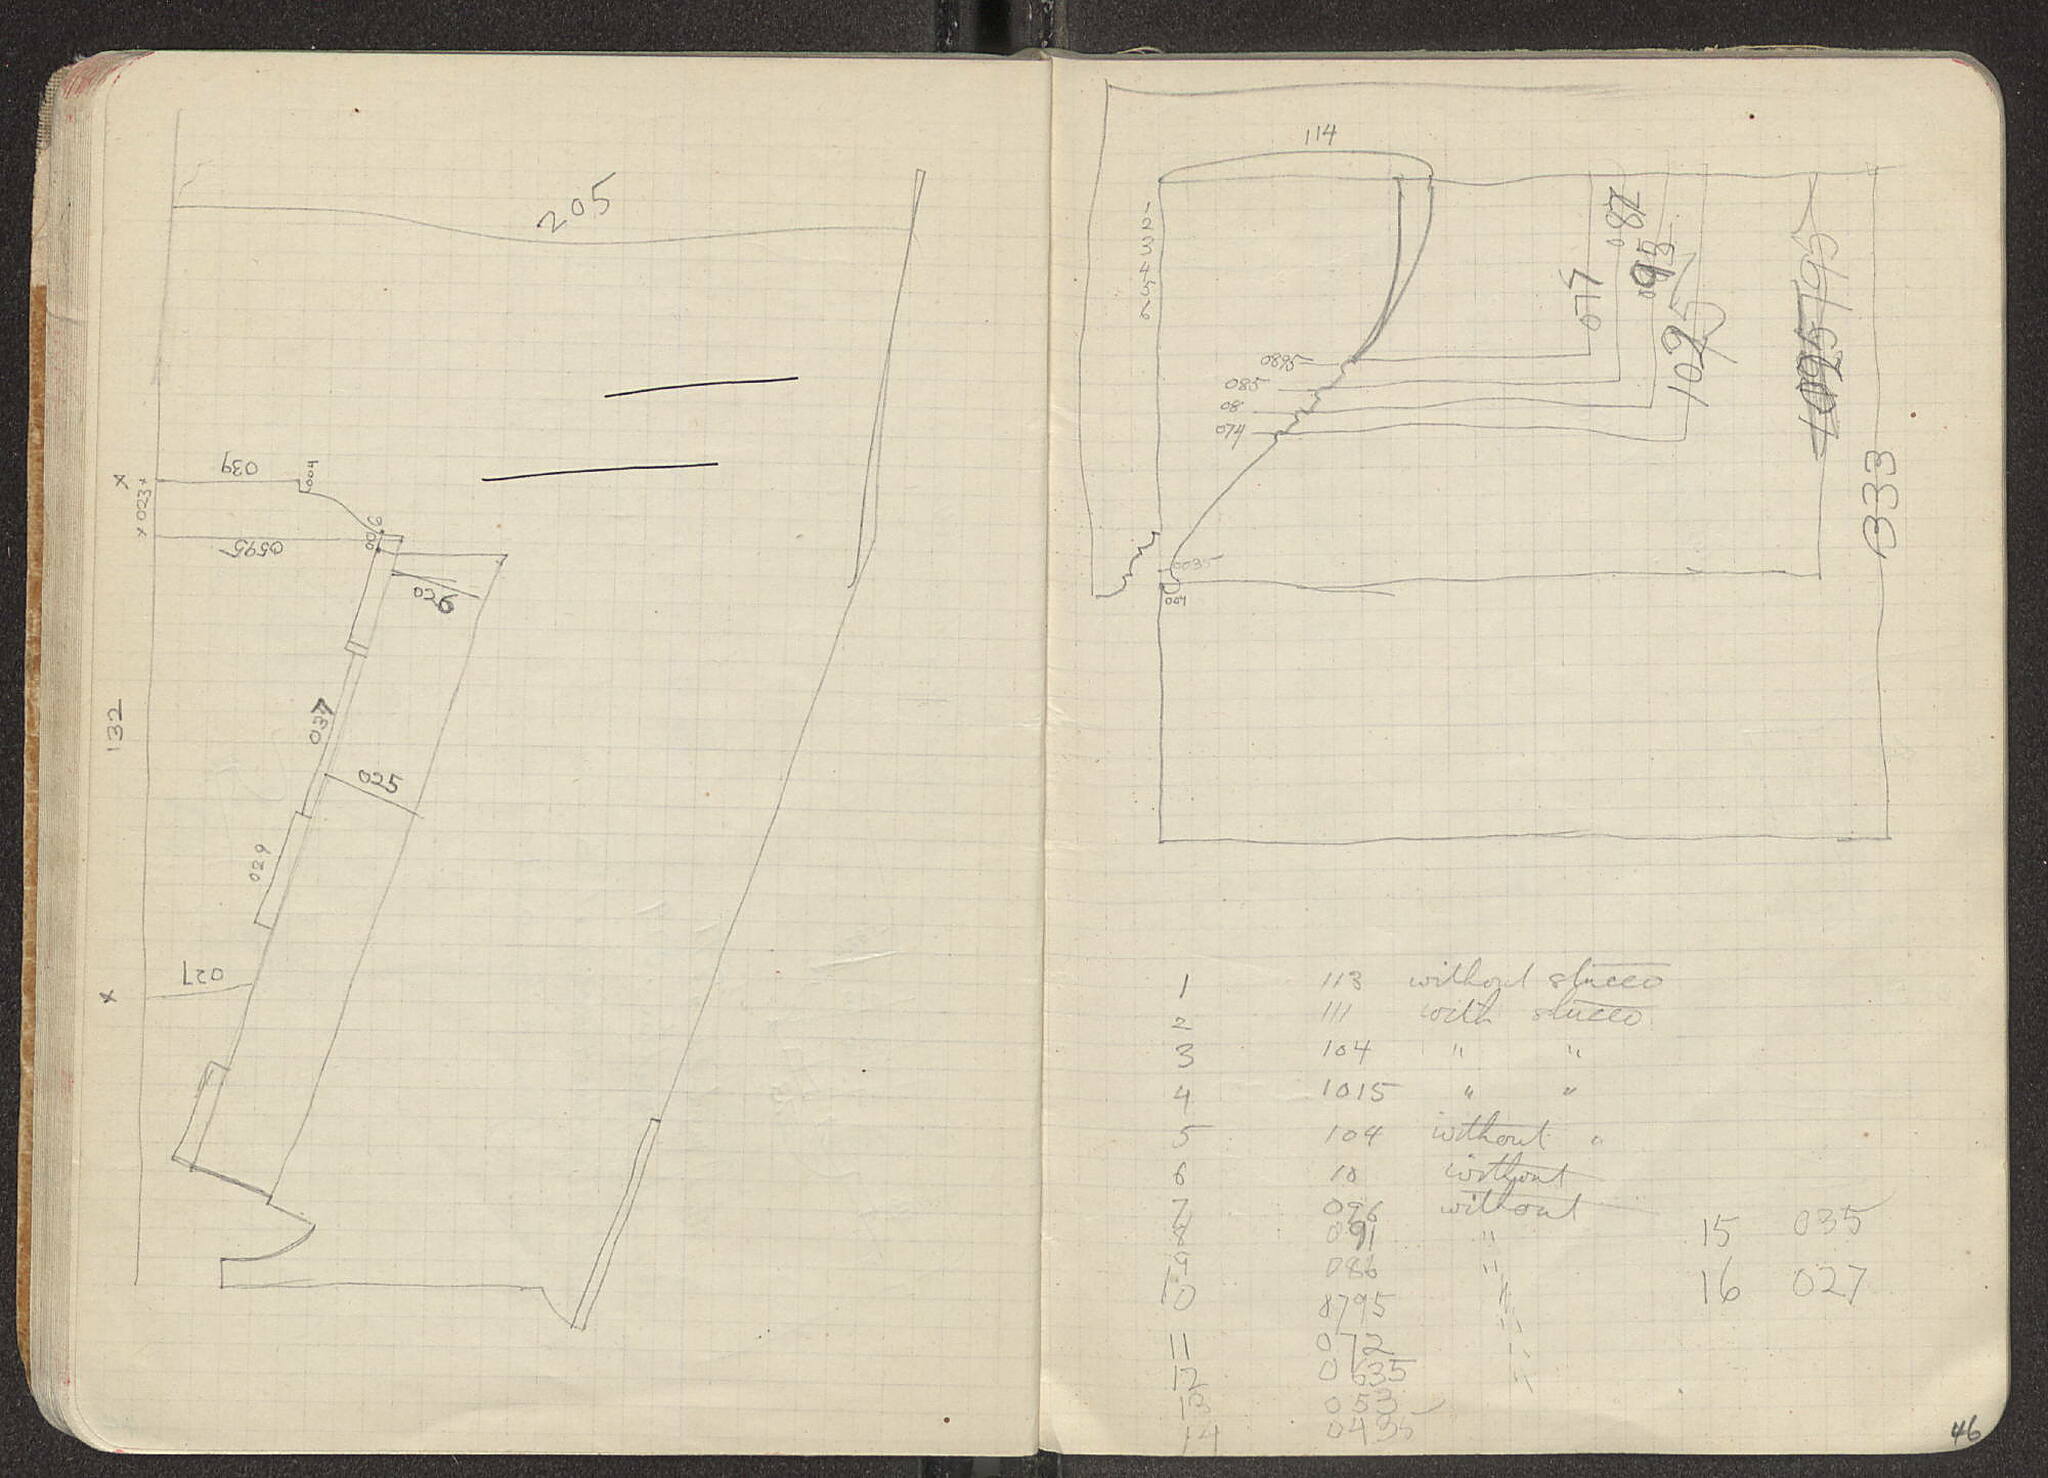 205
039
004
x
x 023 x
0595
006
026
132
037
025
029
027
x
114
1
2
3
4
5
6
087
093
077
1025
795
0895
085
08
074
333
0035
004
1 113 without stucco
2 111 with stucco
3 104 " "
4 1015 " "
5 104 without "
6 10 without
7 096 without
8 091 "
15 035
9 086 "
16 027
10 8795 "
11 072 "
12 0635 "
13 053 "
14 0435
46